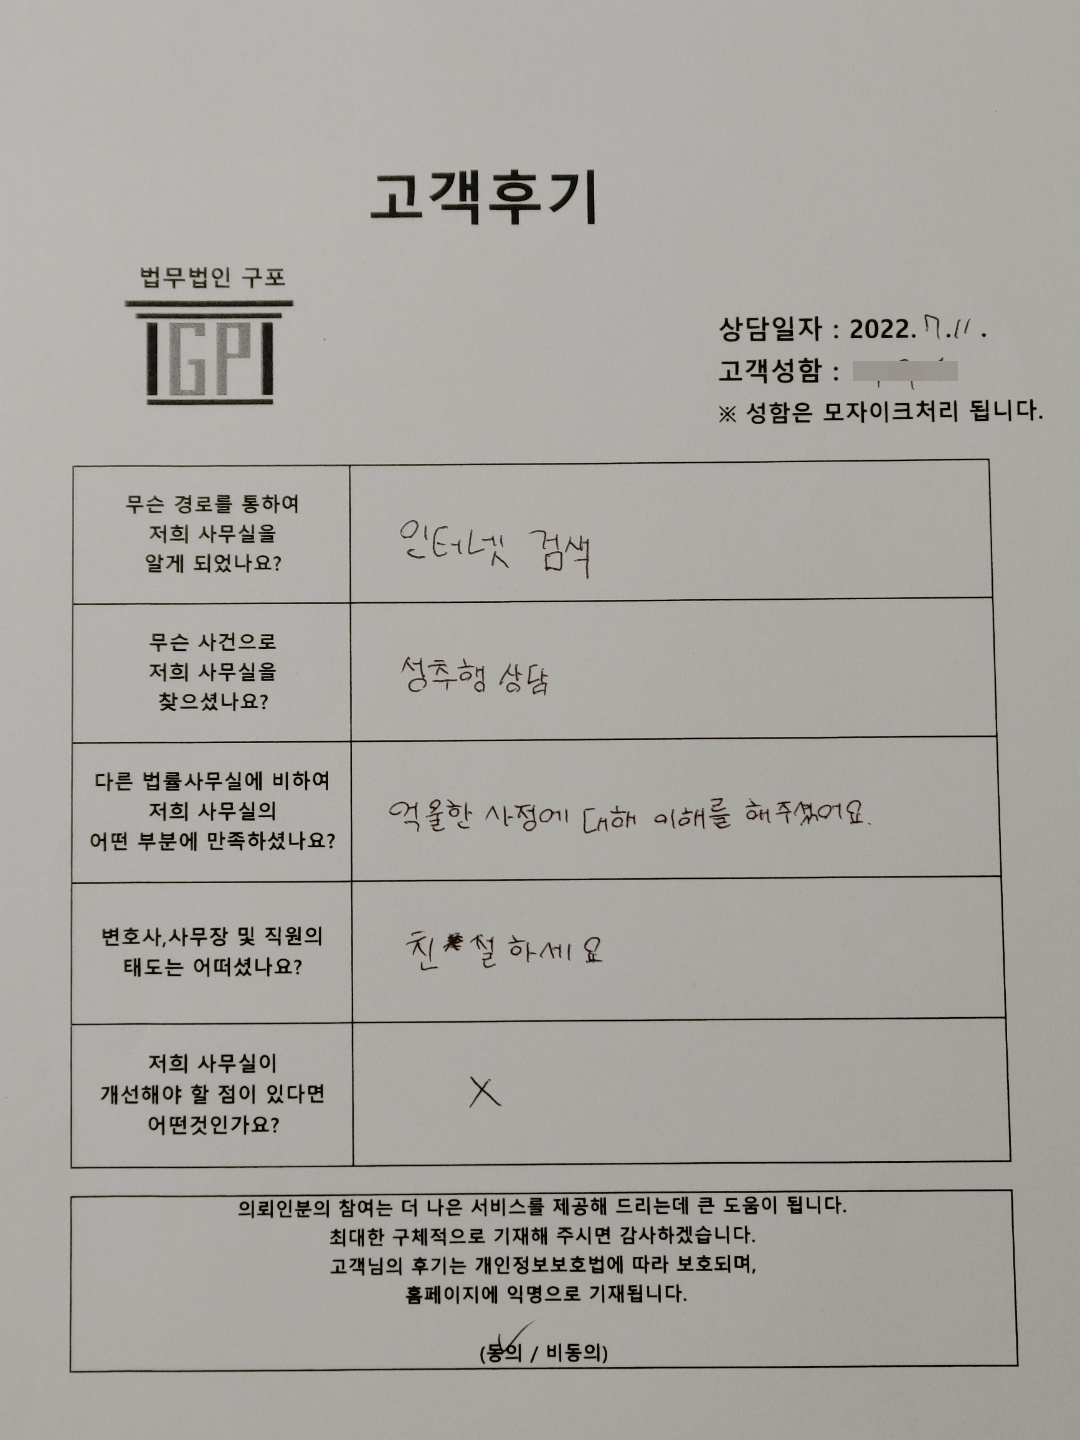 고객후기
법무법인 구포
GP
상담일자 : 2022. 7.11.
고객성함 :
※ 성함은 모자이크처리 됩니다.
무슨 경로를 통하여
저희 사무실을
알게 되었나요?
인터넷 검색
무슨 사건으로
저희 사무실을
찾으셨나요?
성추행 상담
다른 법률사무실에 비하여
저희 사무실의
어떤 부분에 만족하셨나요?
억울한 사정에 대해 이해를 해주셨어요.
변호사,사무장 및 직원의
태도는 어떠셨나요?
친절하세요
저희 사무실이
개선해야 할 점이 있다면
어떤것인가요?
X
의뢰인분의 참여는 더 나은 서비스를 제공해 드리는데 큰 도움이 됩니다.
최대한 구체적으로 기재해 주시면 감사하겠습니다.
고객님의 후기는 개인정보보호법에 따라 보호되며,
홈페이지에 익명으로 기재됩니다.
(동의 / 비동의)